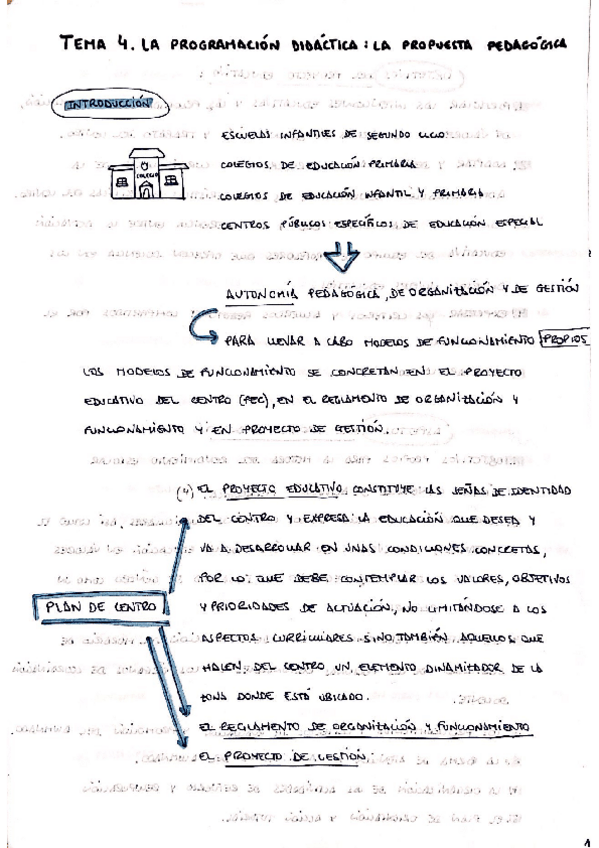 TEMA 4. LA PROGRAMACIÓN DIDÁCTICA: LA PROPUESTA PEDAGÓGICA
INTRODUCCIÓN
COLEGIO
ESCUELAS INFANTILES DE SEGUNDO CICLO
COLEGIOS DE EDUCACIÓN PRIMARIA
COLEGIOS DE EDUCACIÓN INFANTIL Y PRIMARIA
CENTROS PÚBLICOS ESPECÍFICOS DE EDUCACIÓN ESPECIAL
AUTONOMÍA PEDAGÓGICA, DE ORGANIZACIÓN Y DE GESTIÓN
PARA LLEVAR A CABO MODELOS DE FUNCIONAMIENTO PROPIOS
LOS MODELOS DE FUNCIONAMIENTO SE CONCRETAN EN EL PROYECTO
EDUCATIVO DEL CENTRO (PEC), EN EL REGLAMENTO DE ORGANIZACIÓN Y
FUNCIONAMIENTO Y EN PROYECTO DE GESTIÓN.
EL PROYECTO EDUCATIVO CONSTITUYE LAS SEÑAS DE IDENTIDAD
DEL CENTRO Y EXPRESA LA EDUCACIÓN QUE DESEA Y
VA A DESARROLLAR EN UNAS CONDICIONES CONCRETAS,
POR LO QUE DEBE CONTEMPLAR LOS VALORES, OBJETIVOS
PLAN DE CENTRO
Y PRIORIDADES DE ACTUACIÓN, NO LIMITÁNDOSE A LOS
ASPECTOS CURRICULARES SINO TAMBIÉN AQUELLOS QUE
HACEN DEL CENTRO UN ELEMENTO DINAMIZADOR DE LA
ZONA DONDE ESTÁ UBICADO.
EL REGLAMENTO DE ORGANIZACIÓN Y FUNCIONAMIENTO
EL PROYECTO DE GESTIÓN
1